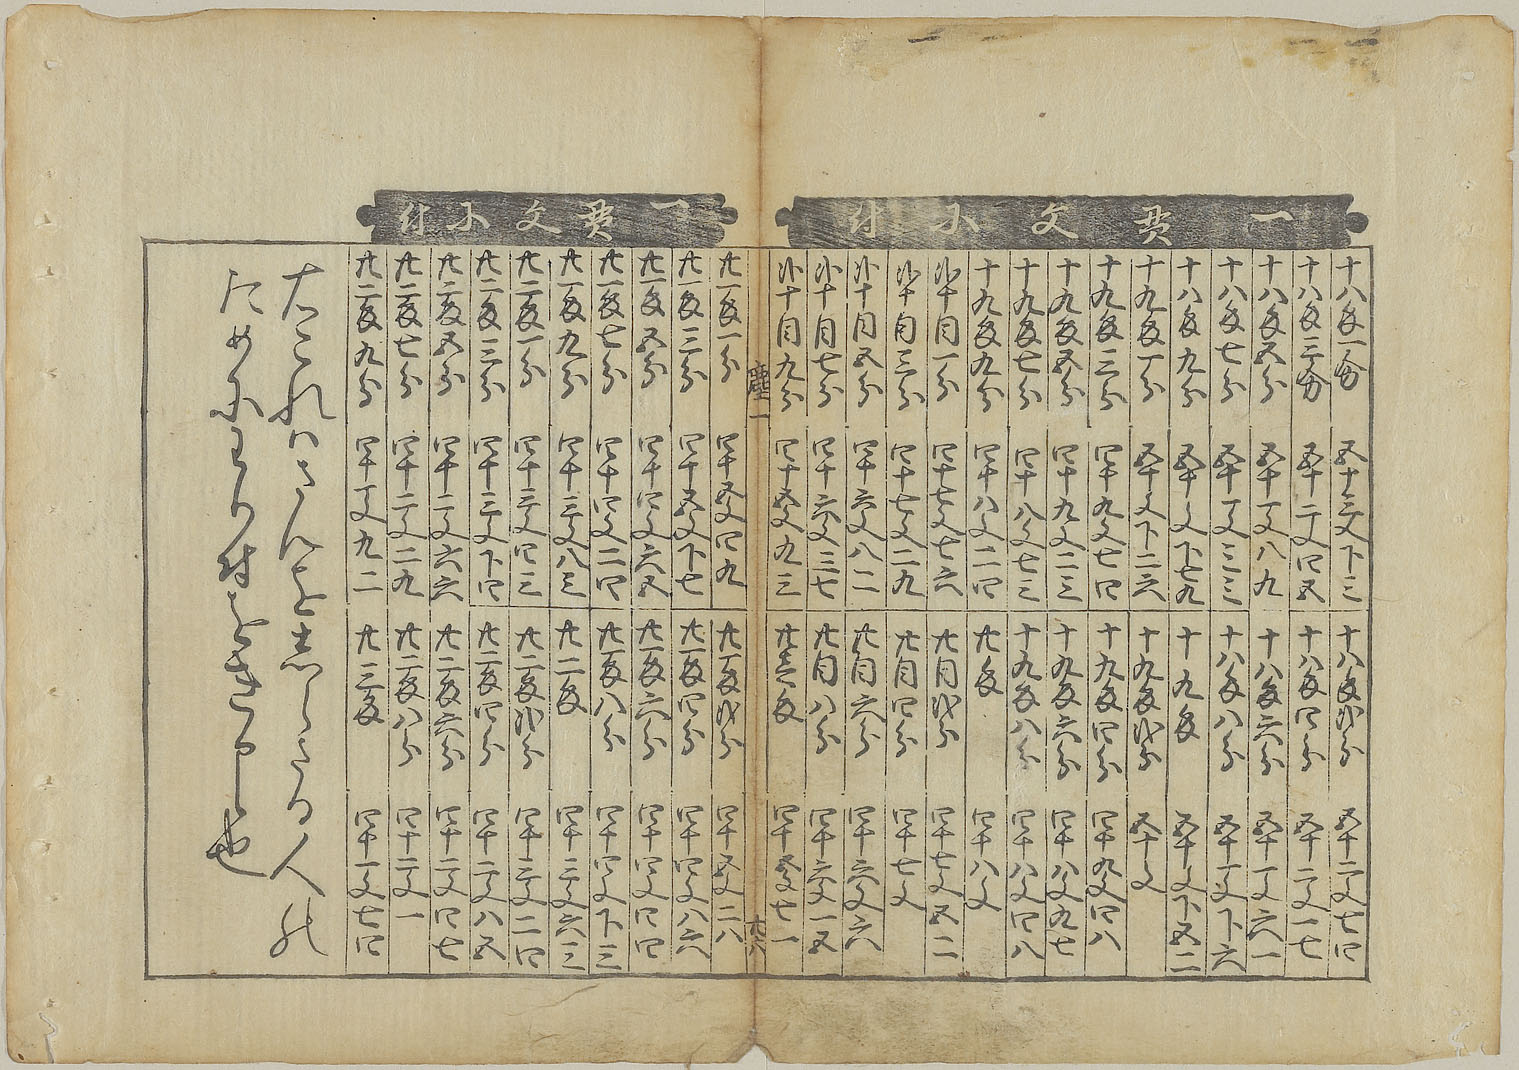 一貫文小付
十八匁一分 五十三文下三 十八匁弐分 五十二文七四
十八匁三分 五十二文四五 十八匁四分 五十二文一七
十八匁五分 五十一文八九 十八匁六分 五十一文六一
十八匁七分 五十一文三三 十八匁八分 五十一文下六
十八匁九分 五十文下七九 十九匁 五十文下五二
十九匁一分 五十文下二六 十九匁弐分 五十文
十九匁三分 四十九文七四 十九匁四分 四十九文四八
十九匁五分 四十九文二三 十九匁六分 四十八文九七
十九匁七分 四十八文七三 十九匁八分 四十八文四八
十九匁九分 四十八文二四 廿匁 四十八文
弐十目一分 四十七文七六 廿目弐分 四十七文五二
弐十目三分 四十七文二九 廿目四分 四十七文
弐十目五分 四十六文八二 廿目六分 四十六文六
弐十目七分 四十六文三七 廿目八分 四十六文一五
弐十目九分 四十五文九三 廿壱匁 四十五文七一
塵一 十六
一貫文小付
廿一匁一分 四十五文四九 廿一匁弐分 四十五文二八
廿一匁三分 四十五文下七 廿一匁四分 四十四文八六
廿一匁五分 四十四文六五 廿一匁六分 四十四文四四
廿一匁七分 四十四文二四 廿一匁八分 四十四文下三
廿一匁九分 四十三文八三 廿二匁 四十三文六三
廿二匁一分 四十三文四三 廿二匁弐分 四十三文二四
廿二匁三分 四十三文下四 廿二匁四分 四十二文八五
廿二匁五分 四十二文六六 廿二匁六分 四十二文四七
廿二匁七分 四十二文二九 廿二匁八分 四十二文一
廿二匁九分 四十一文九二 廿三匁 四十一文七四
右これハさんを志らさる人の
ためにわり付をき申也